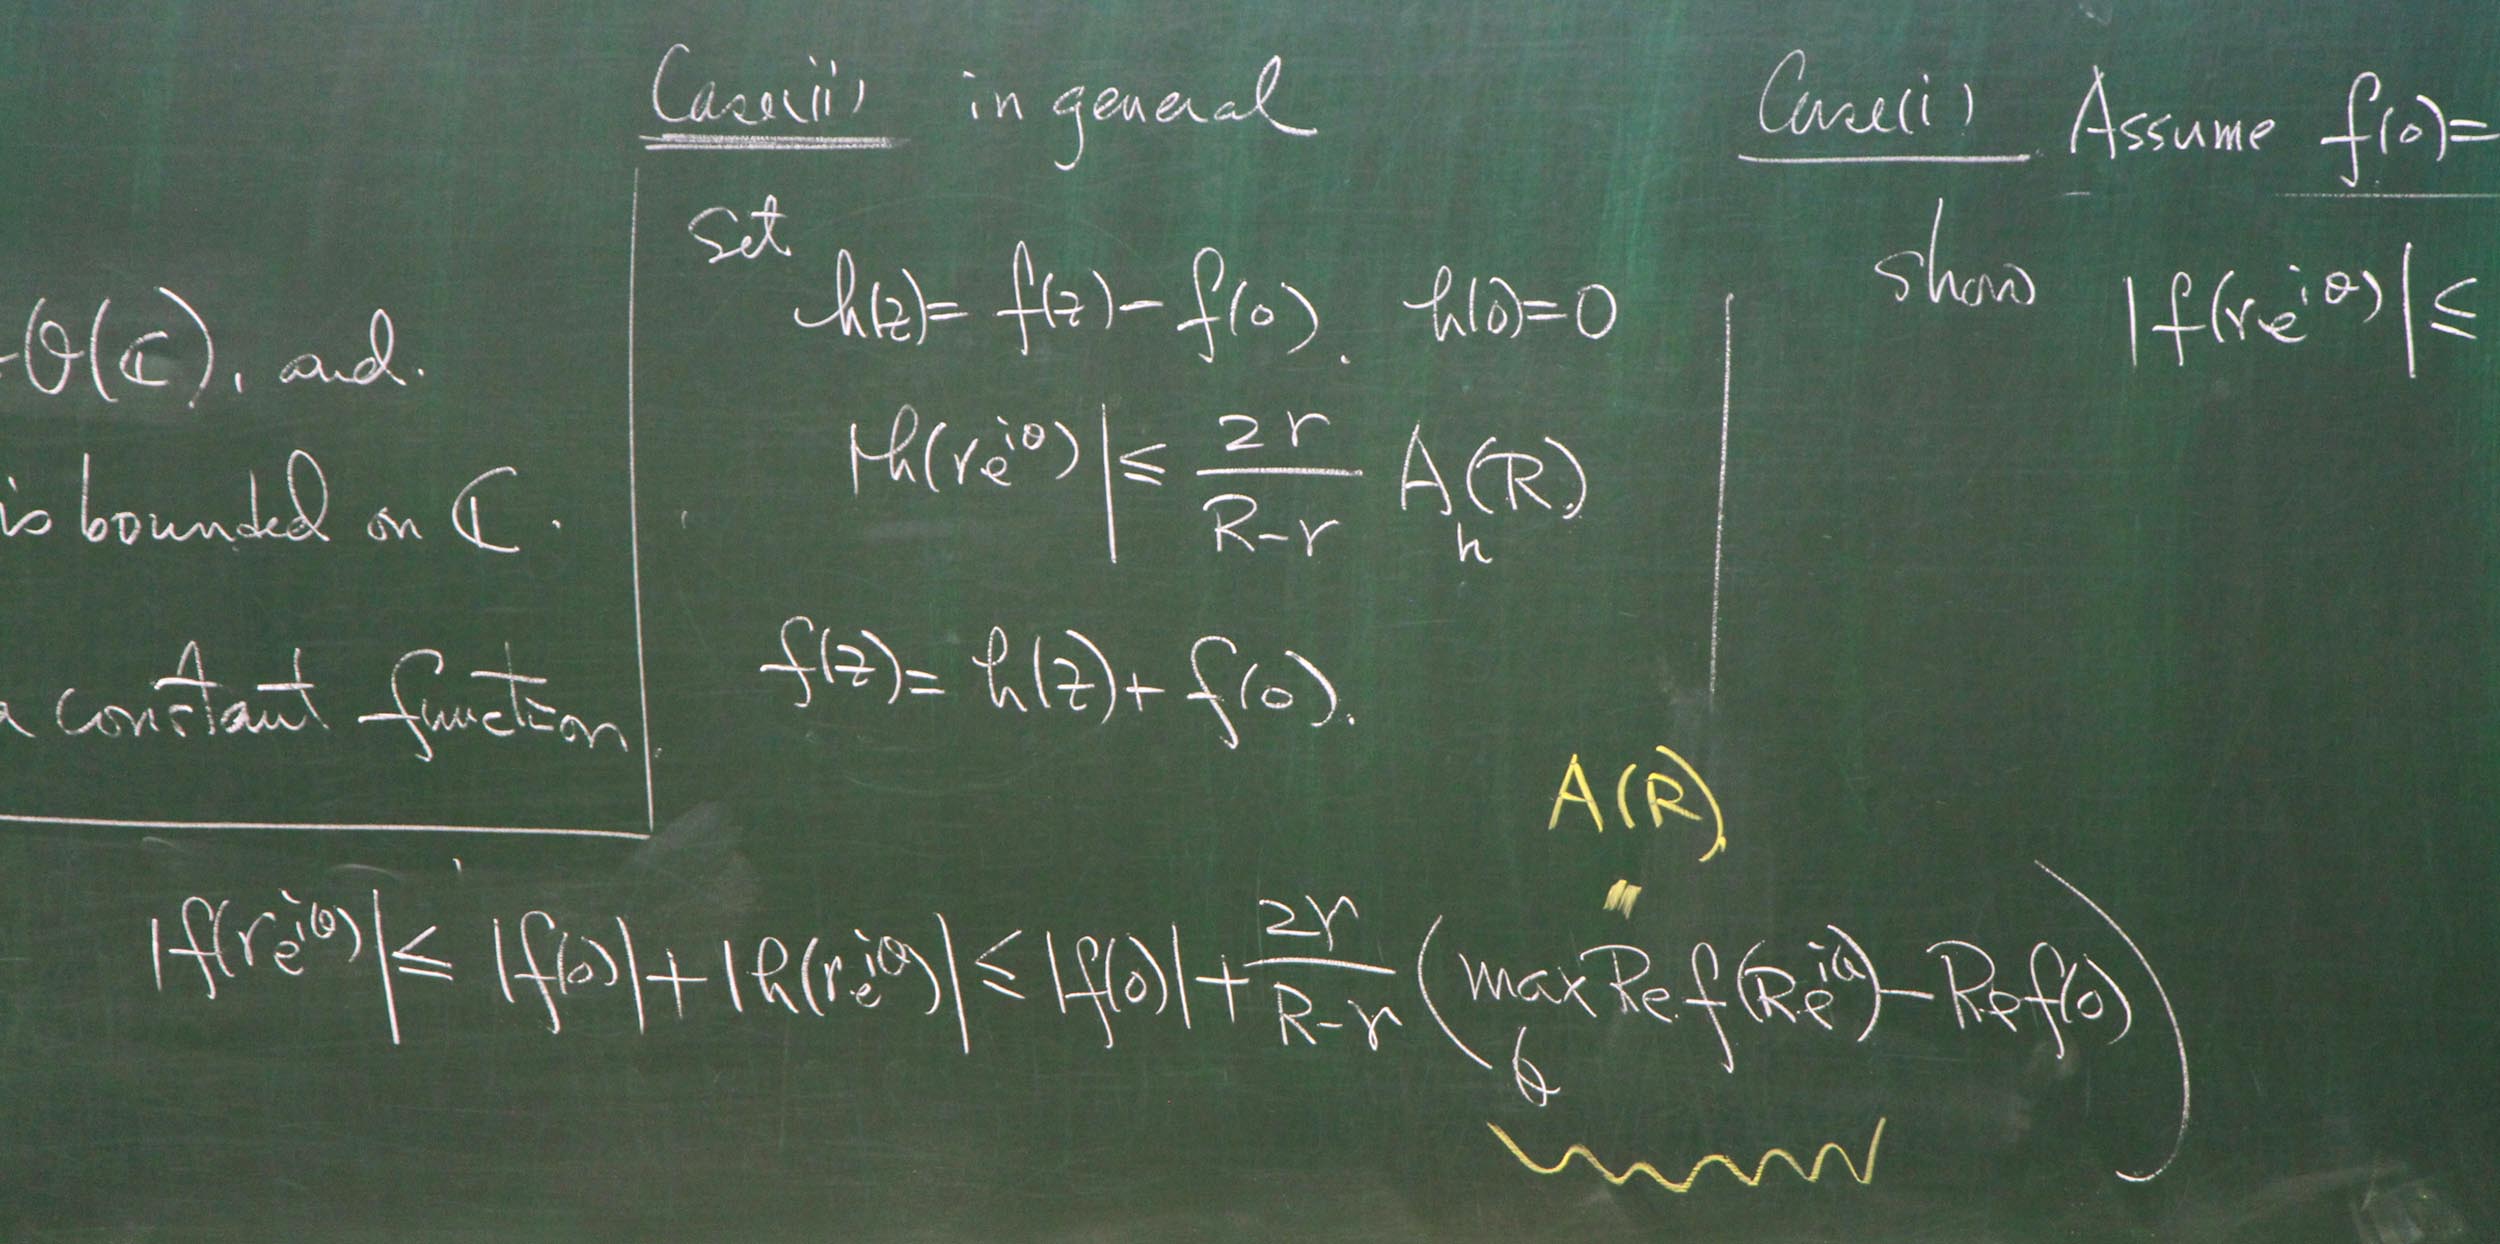 O(ℂ), and.
is bounded on ℂ.
a constant function.
Case(ii) in general
Set
h(z)= f(z)-f(0). h(0)=0
|h(re^{iθ})| ≤ \frac{2r}{R-r} A_h(R)
f(z)= h(z)+ f(0).
Case(i) Assume f(0)=
show |f(re^{iθ})| ≤
A(R)
"
|f(re^{iθ})| ≤ |f(0)|+|h(re^{iθ})| ≤ |f(0)|+ \frac{2r}{R-r} ( max_θ Re f(Re^{iθ}) - Re f(0) )